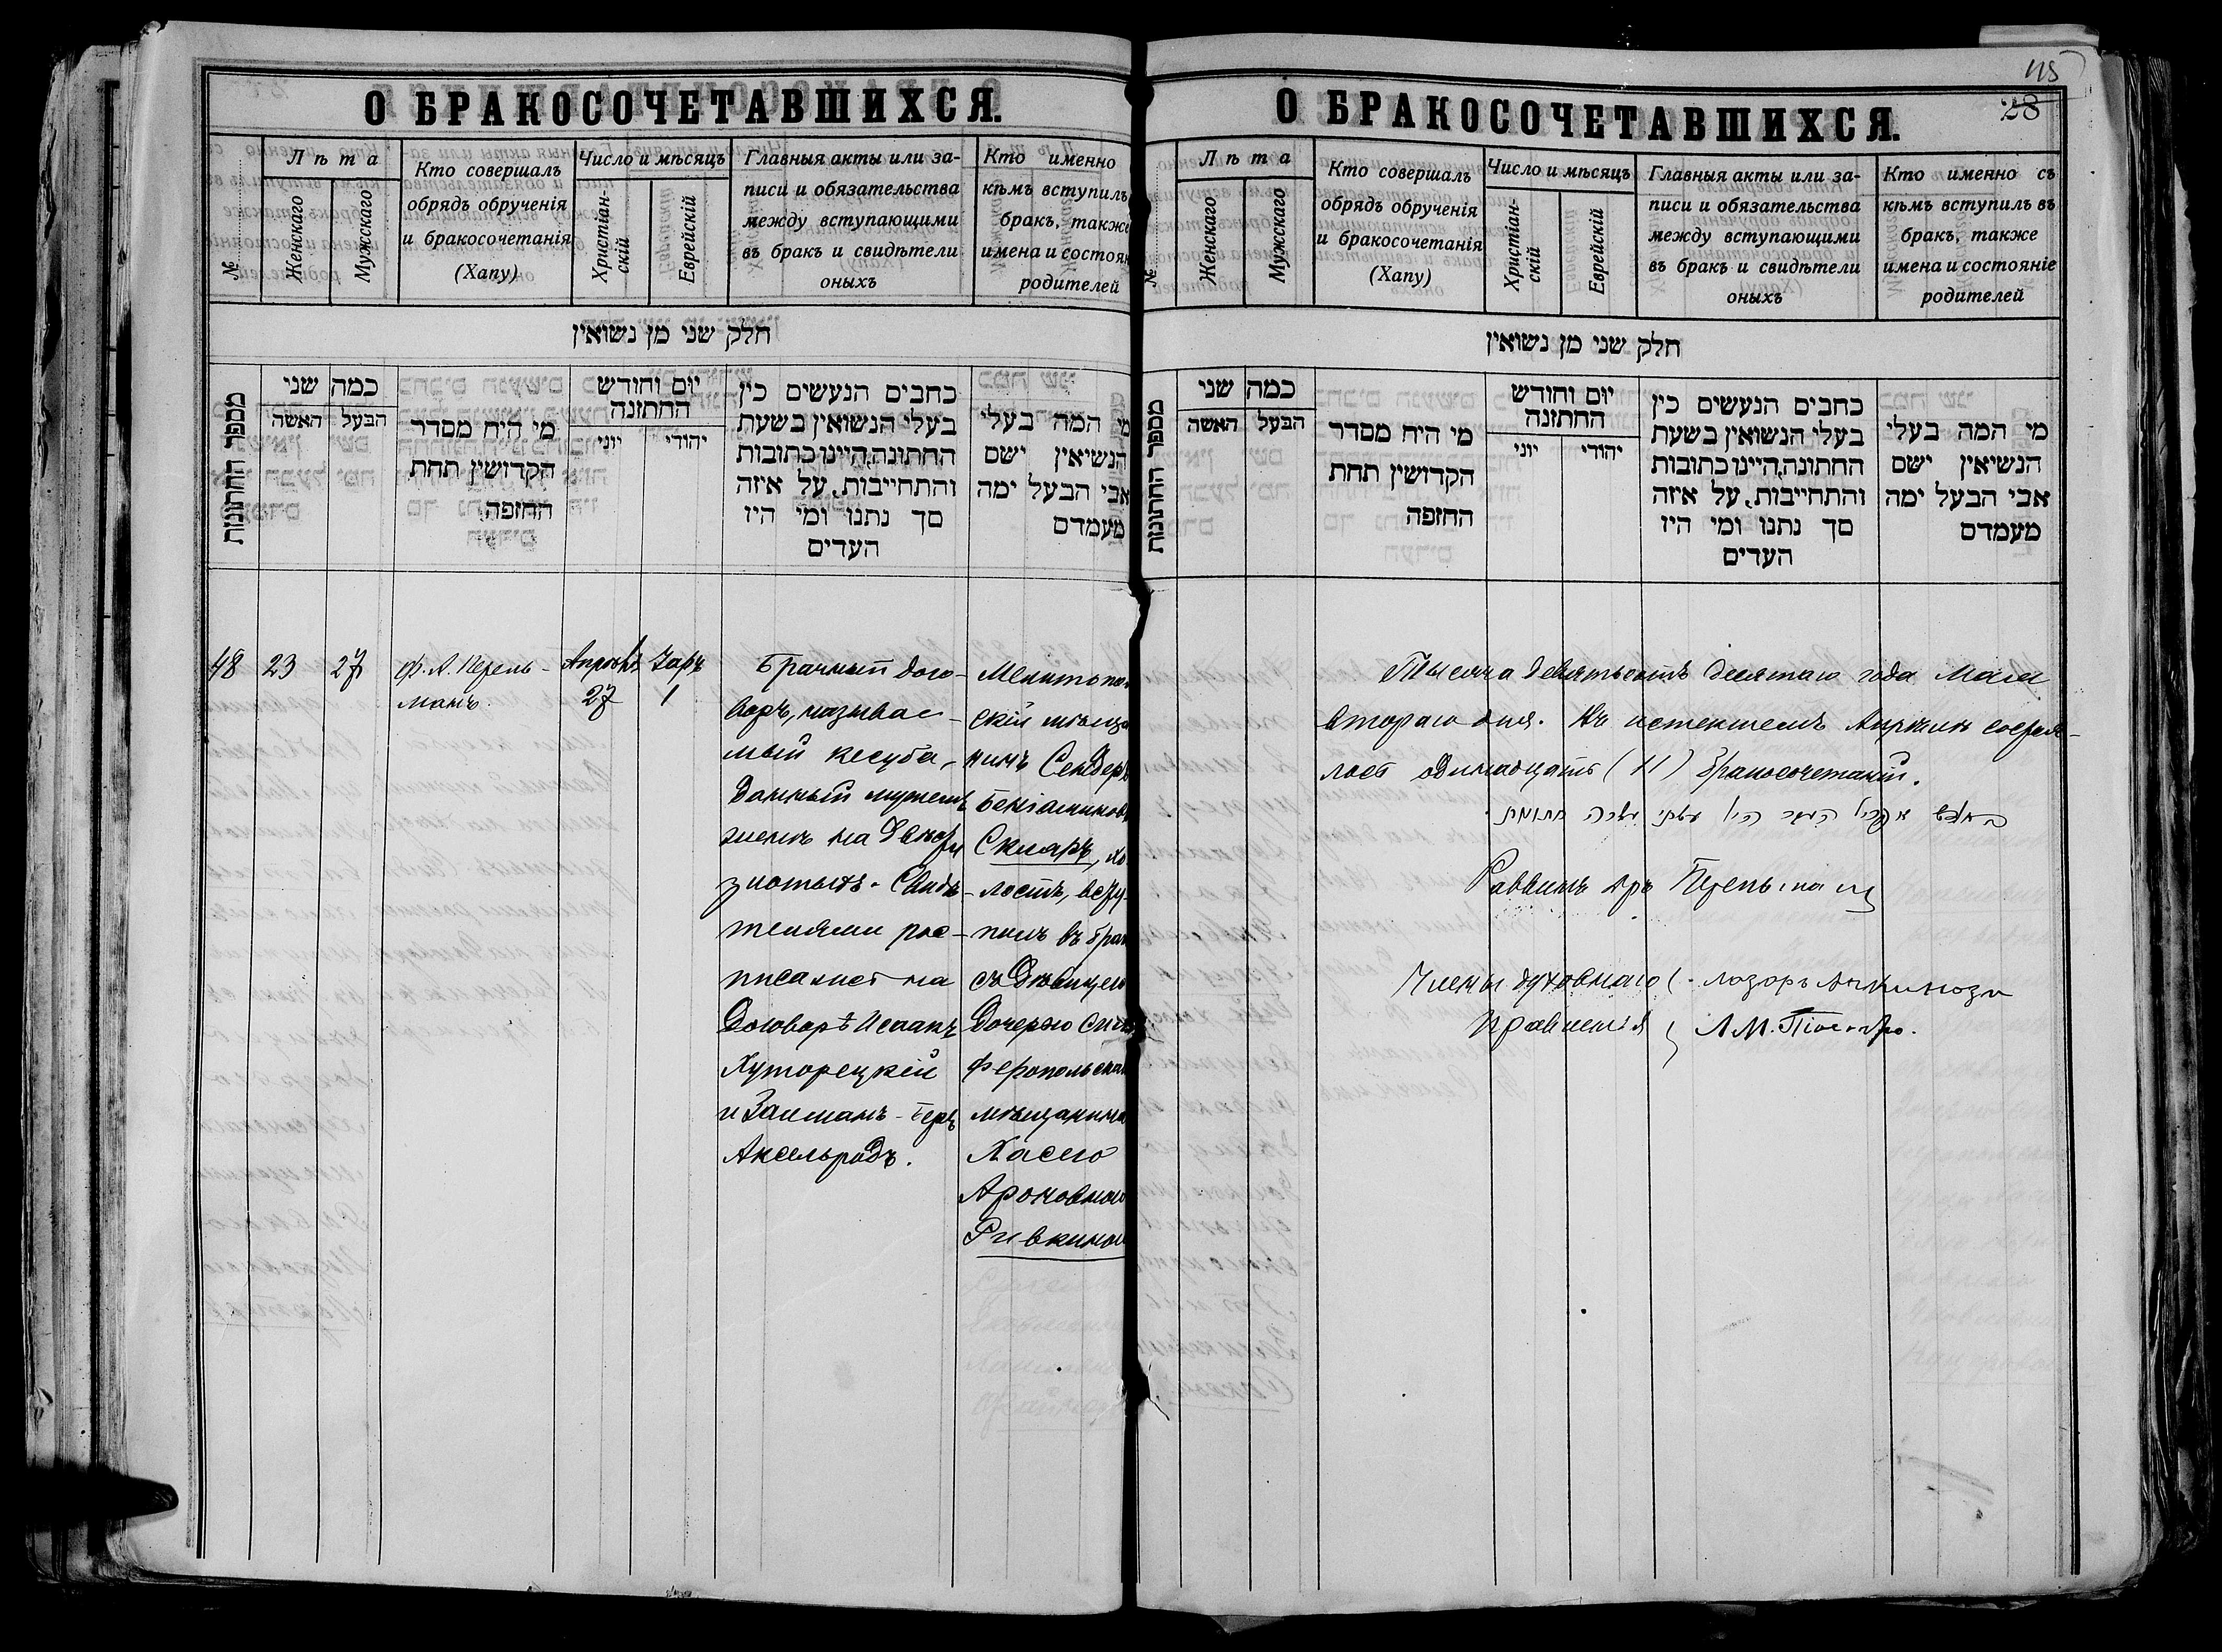 О БРАКОСОЧЕТАВШИХСЯ.
№
Лѣта
Женскаго
Мужскаго
Кто совершалъ
обрядъ обрученія
и бракосочетанія
(Хапу)
Число и мѣсяцъ
Христіан-
скій
Еврейскій
Главныя акты или за-
писи и обязательства
между вступающими
въ бракъ и свидѣтели
оныхъ
Кто именно
кѣмъ вступилъ
бракъ, также
имена и состоян
родителей
חלק שני מן נשואין
מספר החתונות
כמה שני
האשה
הבעל
מי היה מסדר
הקדושין תחת
החופה
יום וחודש
החתונה
יוני
יהודי
כתבים הנעשים בין
בעלי הנשואין בשעת
החתונה, היינו כתובות
והתחייבות, על איזה
סך נתנו ומי היו
העדים
מי המה בעלי
הנשיאין ישם
אבי הבעל ימה
מעמדם
48
23
27
Ф. А. Перель-
манъ.
Апрѣль
27
Iаръ
1
Брачный дого-
воръ, называе-
мый кесуба,
данный мужемъ
женѣ на двѣсти
злотыхъ. Свидѣ-
телями рос-
писались на
договорѣ Исаакъ
Хуторецкій
и Залманъ-Беръ
Аксельродъ.
Мелитопол
скій мѣща
нинъ Сендеръ
Беніаминов
Скляръ, хо
лостъ, всту-
пилъ въ бра
съ дѣвицею
дочерью Сим
феропольска
мѣщанина
Хасею
Ароновною
Ривкиною
О БРАКОСОЧЕТАВШИХСЯ.
115
28
№
Лѣта
Женскаго
Мужскаго
Кто совершалъ
обрядъ обрученія
и бракосочетанія
(Хапу)
Число и мѣсяцъ
Христіан-
скій
Еврейскій
Главныя акты или за-
писи и обязательства
между вступающими
въ бракъ и свидѣтели
оныхъ
Кто именно съ
кѣмъ вступилъ въ
бракъ, также
имена и состояніе
родителей
חלק שני מן נשואין
מספר החתונות
כמה שני
האשה
הבעל
מי היה מסדר
הקדושין תחת
החופה
יום וחודש
החתונה
יוני
יהודי
כתבים הנעשים בין
בעלי הנשואין בשעת
החתונה, היינו כתובות
והתחייבות, על איזה
סך נתנו ומי היו
העדים
מי המה בעלי
הנשיאין ישם
אבי הבעל ימה
מעמדם
Тысяча девятьсотъ десятаго года Мая
второго дня. Въ истекшемъ Апрѣлѣ соверши-
лось одинадцать (11) бракосочетаній.
Раввинъ д-ръ Перельманъ
Члены духовнаго
правленія